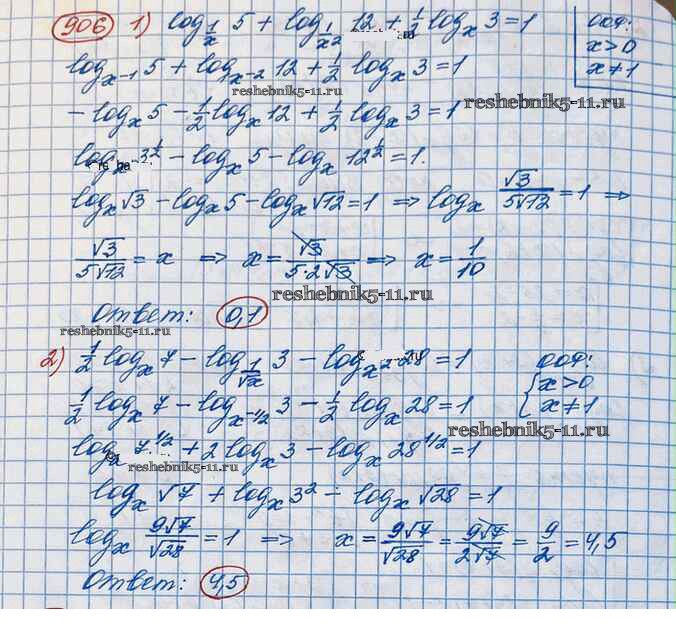 906 1) log_{1/x} 5 + log_{1/x²} 12 + 1/2 log_x 3 = 1
ООФ:
x > 0
x ≠ 1
log_{x⁻¹} 5 + log_{x⁻²} 12 + 1/2 log_x 3 = 1
reshebnik5-11.ru
reshebnik5-11.ru
- log_x 5 - 1/2 log_x 12 + 1/2 log_x 3 = 1
log_x 3^{1/2} - log_x 5 - log_x 12^{1/2} = 1.
log_x √3 - log_x 5 - log_x √12 = 1 ⇒ log_x √3/(5√12) = 1 ⇒
√3/(5√12) = x ⇒ x = √3/(5·2√3) ⇒ x = 1/10
reshebnik5-11.ru
Ответ: 0,1
reshebnik5-11.ru
2) 1/2 log_x 7 - log_{1/√x} 3 - log_{x²} 28 = 1
ООФ:
{ x > 0
x ≠ 1
1/2 log_x 7 - log_{x^{-1/2}} 3 - 1/2 log_x 28 = 1
reshebnik5-11.ru
log_x 7^{1/2} + 2 log_x 3 - log_x 28^{1/2} = 1
reshebnik5-11.ru
log_x √7 + log_x 3² - log_x √28 = 1
log_x 9√7/√28 = 1 ⇒ x = 9√7/√28 = 9√7/2√7 = 9/2 = 4,5
Ответ: 4,5